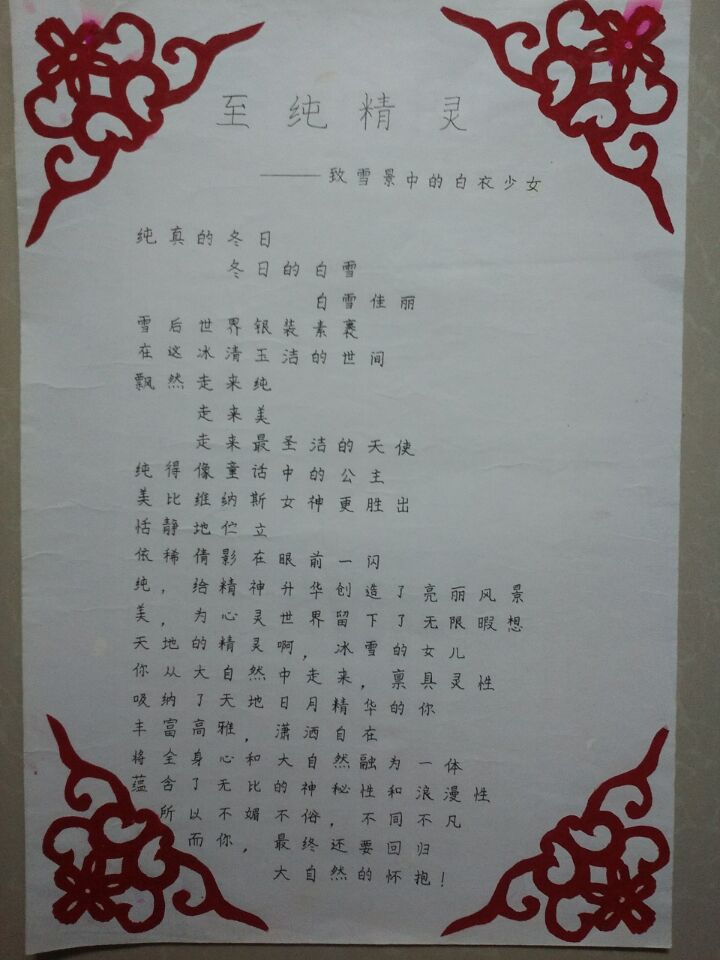 至纯精灵
——致雪景中的白衣少女
纯真的冬日
冬日的白雪
白雪佳丽
雪后世界银装素裹
在这冰清玉洁的世间
飘然走来纯
走来美
走来最圣洁的天使
纯得像童话中的公主
美比维纳斯女神更胜出
恬静地伫立
依稀倩影在眼前一闪
纯，给精神升华创造了亮丽风景
美，为心灵世界留下了无限暇想
天地的精灵啊，冰雪的女儿
你从大自然中走来，禀具灵性
吸纳了天地日月精华的你
丰富高雅，潇洒自在
将全身心和大自然融为一体
蕴含了无比的神秘性和浪漫性
所以不媚不俗，不同不凡
而你，最终还要回归
大自然的怀抱！